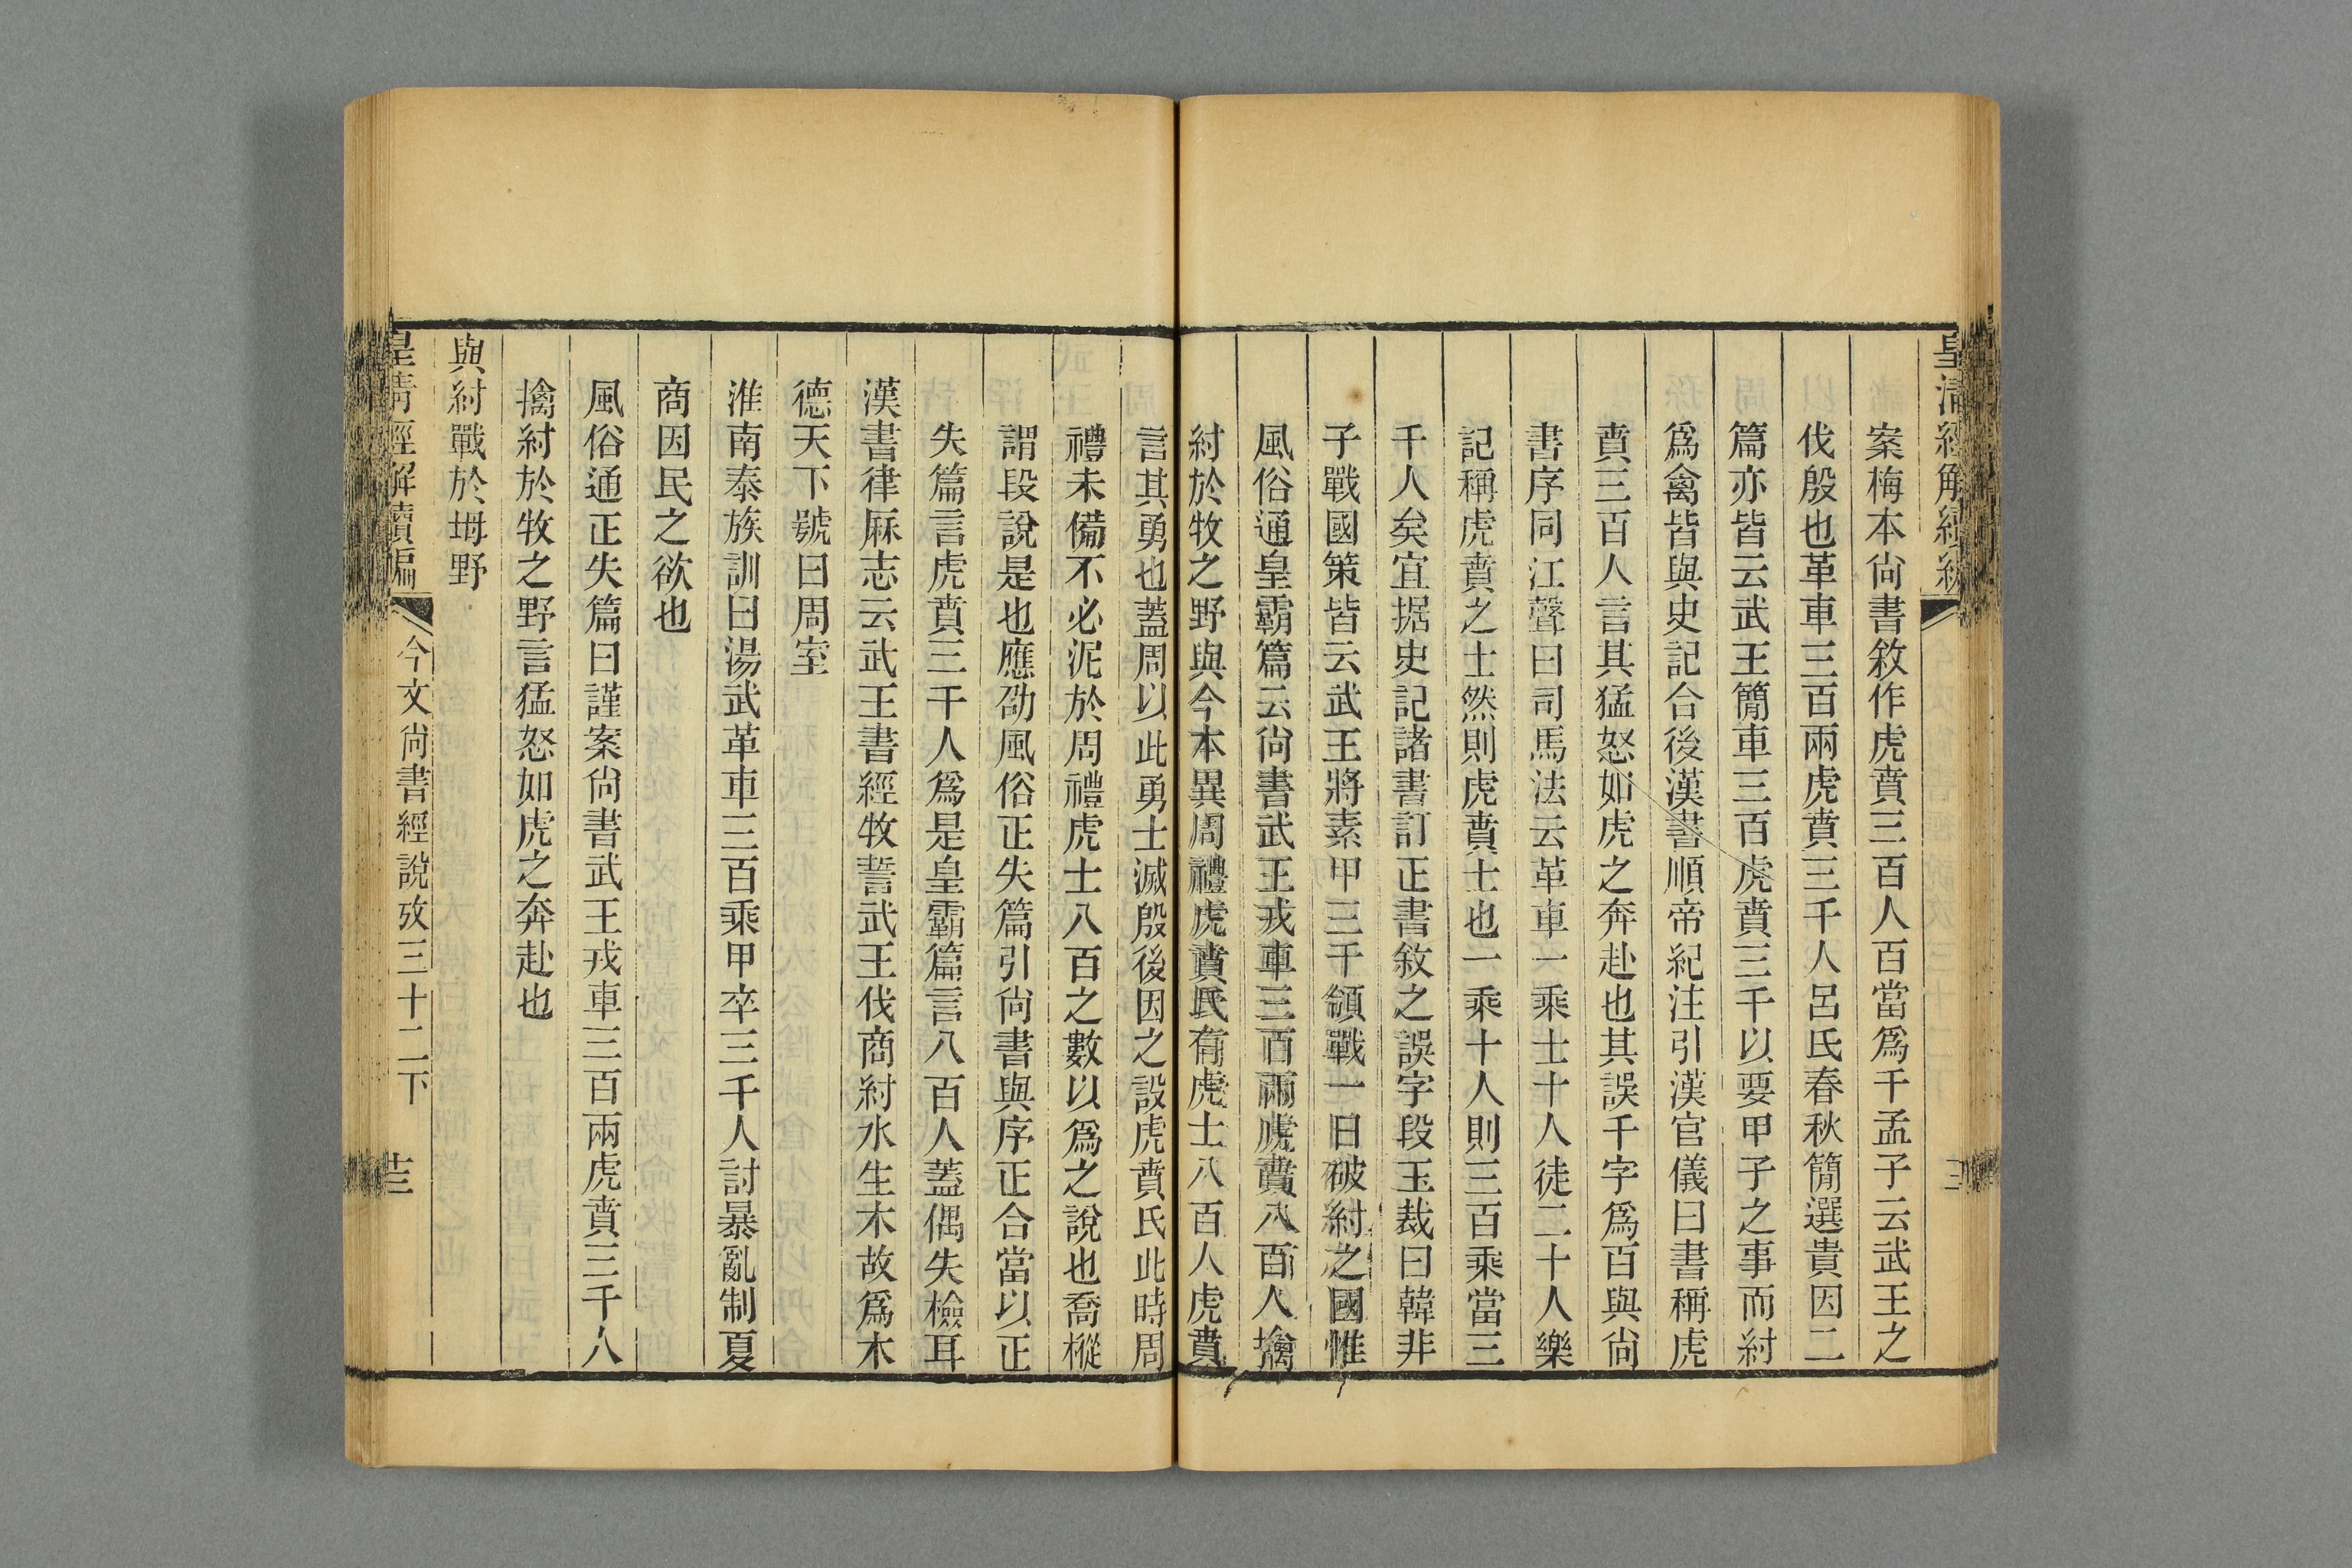 皇清經解續編
案梅本尙書敘作虎賁三百人百當爲千孟子云武王之
伐殷也革車三百兩虎賁三千人呂氏春秋簡選貴因二
篇亦皆云武王簡車三百虎賁三千以要甲子之事而紂
爲禽皆與史記合後漢書順帝紀注引漢官儀曰書稱虎
賁三百人言其猛怒如虎之奔赴也其誤千字爲百與尙
書序同江聲曰司馬法云革車一乘士十人徒二十人樂
記稱虎賁之士然則虎賁士也一乘十人則三百乘當三
千人矣宜据史記諸書訂正書敘之誤字段玉裁曰韓非
子戰國策皆云武王將素甲三千領戰一日破紂之國惟
風俗通皇霸篇云尙書武王戎車三百兩虎賁八百人擒
紂於牧之野與今本異周禮虎賁氏有虎士八百人虎賁
言其勇也蓋周以此勇士滅殷後因之設虎賁氏此時周
禮未備不必泥於周禮虎士八百之數以爲之說也喬樅
謂段說是也應劭風俗正失篇引尙書與序正合當以正
失篇言虎賁三千人爲是皇霸篇言八百人蓋偶失檢耳
漢書律厤志云武王書經牧誓武王伐商紂水生木故爲木
德天下號曰周室
淮南泰族訓曰湯武革車三百乘甲卒三千人討暴亂制夏
商因民之欲也
風俗通正失篇曰謹案尙書武王戎車三百兩虎賁三千八
擒紂於牧之野言猛怒如虎之奔赴也
與紂戰於坶野
皇清經解續編
今文尙書經說攷三十二下